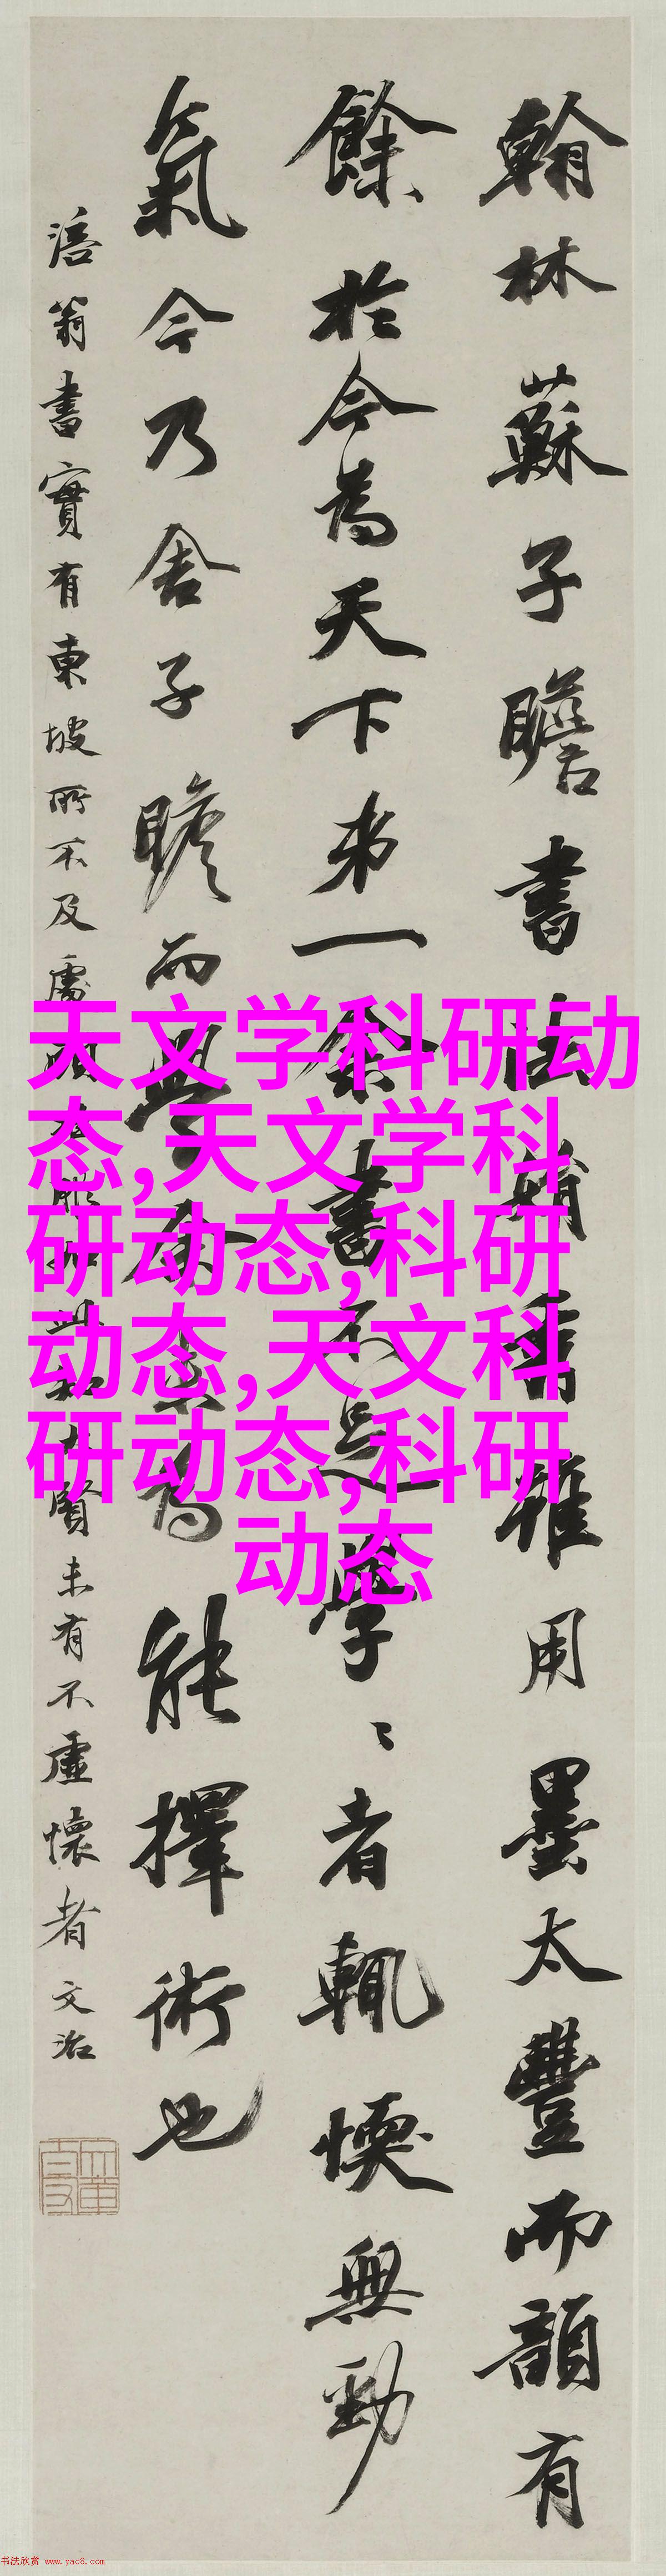 翰林蘇子瞻書法娟秀雖用墨太豐而韻有
餘於今為天下第一余書不足學學者輒愞無勁
氣今乃舍子瞻而學余未為能擇術也
涪翁書實有東坡所不及處
賢未有不虛懷者文治
天文学科研动
态,天文学科
研动态,科研
动态,天文科
研动态,科研
动态
书法欣赏 www.yac8.com